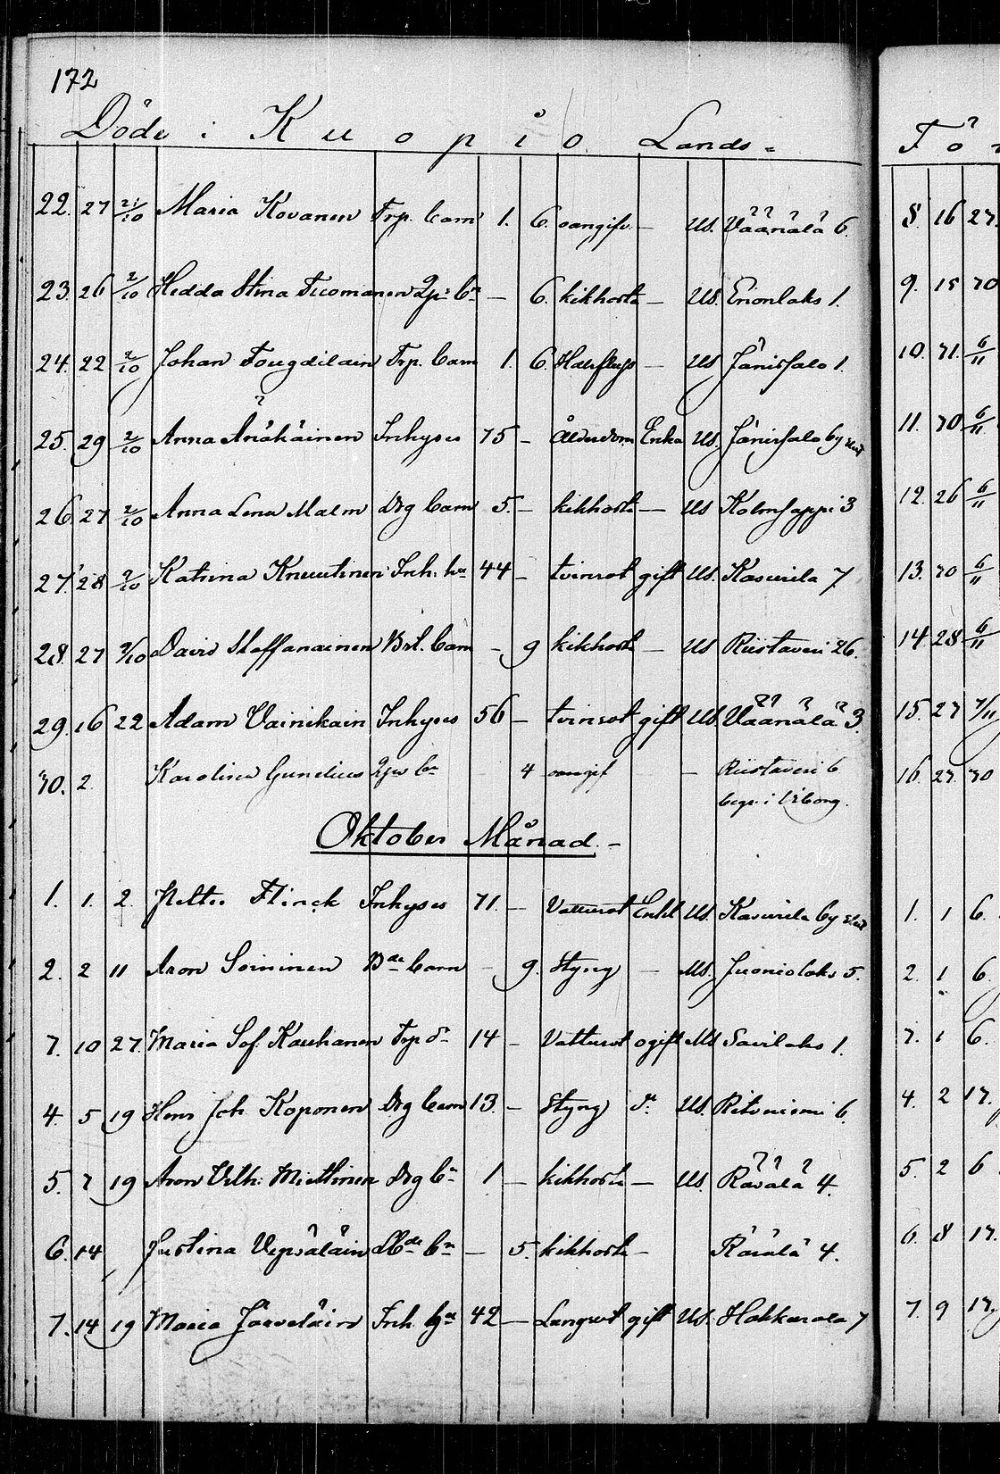 172
Döde i Kuopio Lands=
22. 27 2/10 Maria Kovanen Trp. barn 1. 6. oangifv. — Us. Väänälä 6.
23. 26 2/10 Hedda Stina Tuomanen — 6. kikhosta — Us. Enonlaks 1.
24. 22 2/10 Johan Tougdilain Trp. barn 1. 6. — Us Jänissalo 1.
25. 29 2/10 Anna Inhyses 75 — Ålderdom Enka Us. Jänissalo by
26. 27 2/10 Anna Lena Malm Drg barn 5. — kikhosta — Us 3
27. 28 2/10 Katrina Knuutinen Inh. hu 44 — tvinsot gift Us. Kasurila 7
28. 27 2/10 David Staffanainen barn - 9 kikhosta — Us Riistaveri 26.
29. 16 22 Adam Vainikain Inhyses 56 — tvinsot gift Us. Väänälä 3.
30. 2. Karolina Gunelius 4 oangif — Riistaveri 6
begr. i Viborg.
Oktober Månad. -
1. 1. 2. Petter Flinck Inhyses 71. — Vattusot Enkl Us. Kasurila by
2. 2 11 Aron Soininen barn - 9. Styng — Us. Juonionlaks 5.
3. 10 27. Maria Sof. Kauhanen Trp dr 14 — Vattusot ogift Us Savilaks 1.
4. 5 19 Hens Joh Koponen Drg barn 13. — Styng dr Us. Ritoniemi 6.
5. 7 19 Aron Vilh. Miettinen Drg bn 1 — kikhosta — Us. Räsälä 4.
6. 14 Justina Vepsäläin bn — 5. kikhosta — Räsälä 4.
7. 14 19 Maria Järveläin Inh. 42 — Lungsot gift Us. Hakkarala 7
Fö
8. 16 27.
9. 15 30
10. 31. 6/11
11. 30 6/11
12. 26 6/11
13. 30 6/11
14 28 6/11
15. 27 7/11
16. 27. 30
1. 1 6.
2. 1 6.
3. 1 6.
4. 2 17.
5. 2 6
6. 8 17.
7. 9 17